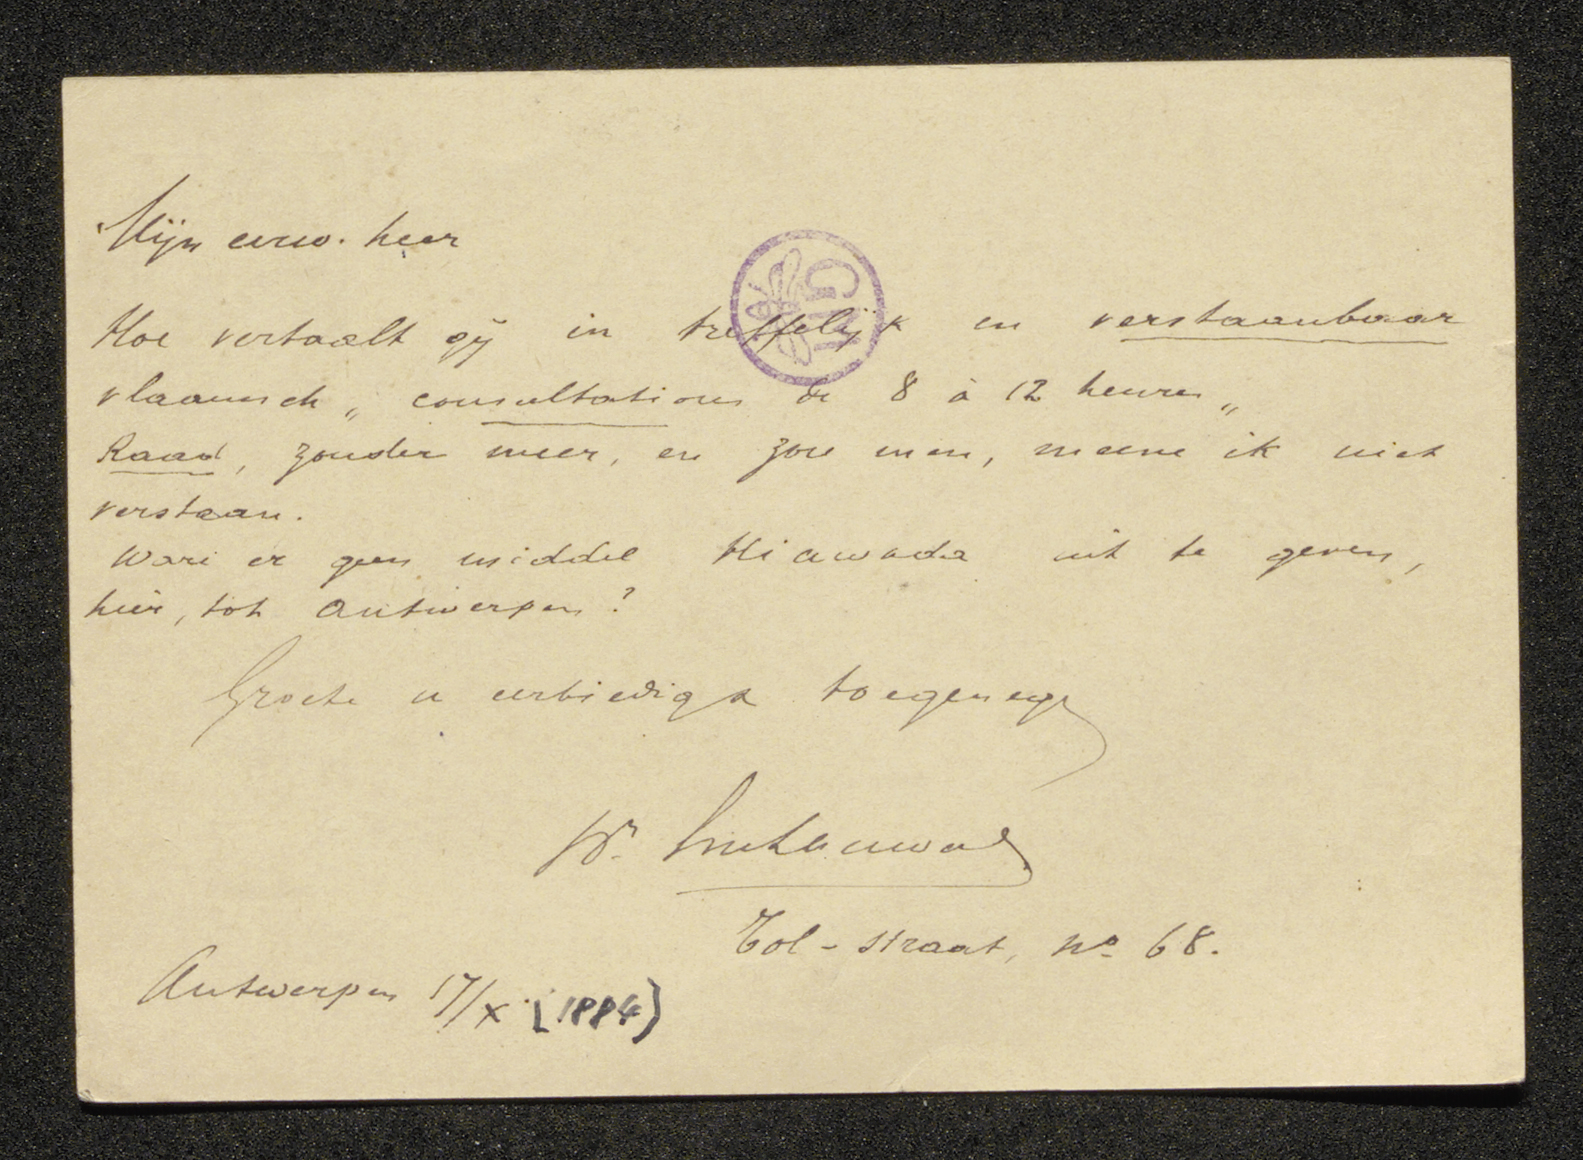 Mijn eerw. heer
Hoe vertaalt gij in treffelijk en verstaanbaar
vlaamsch „ consultations de 8 à 12 heures „
Raad, zonder meer, en zou men, meene ik niet
verstaan.
Ware er geen middel Hiawada uit te geven,
hier, tot Antwerpen?
Groete u eerbiedigst toegenegen
Dr.
Tol-straat, No 68.
Antwerpen 17/X. [1884]